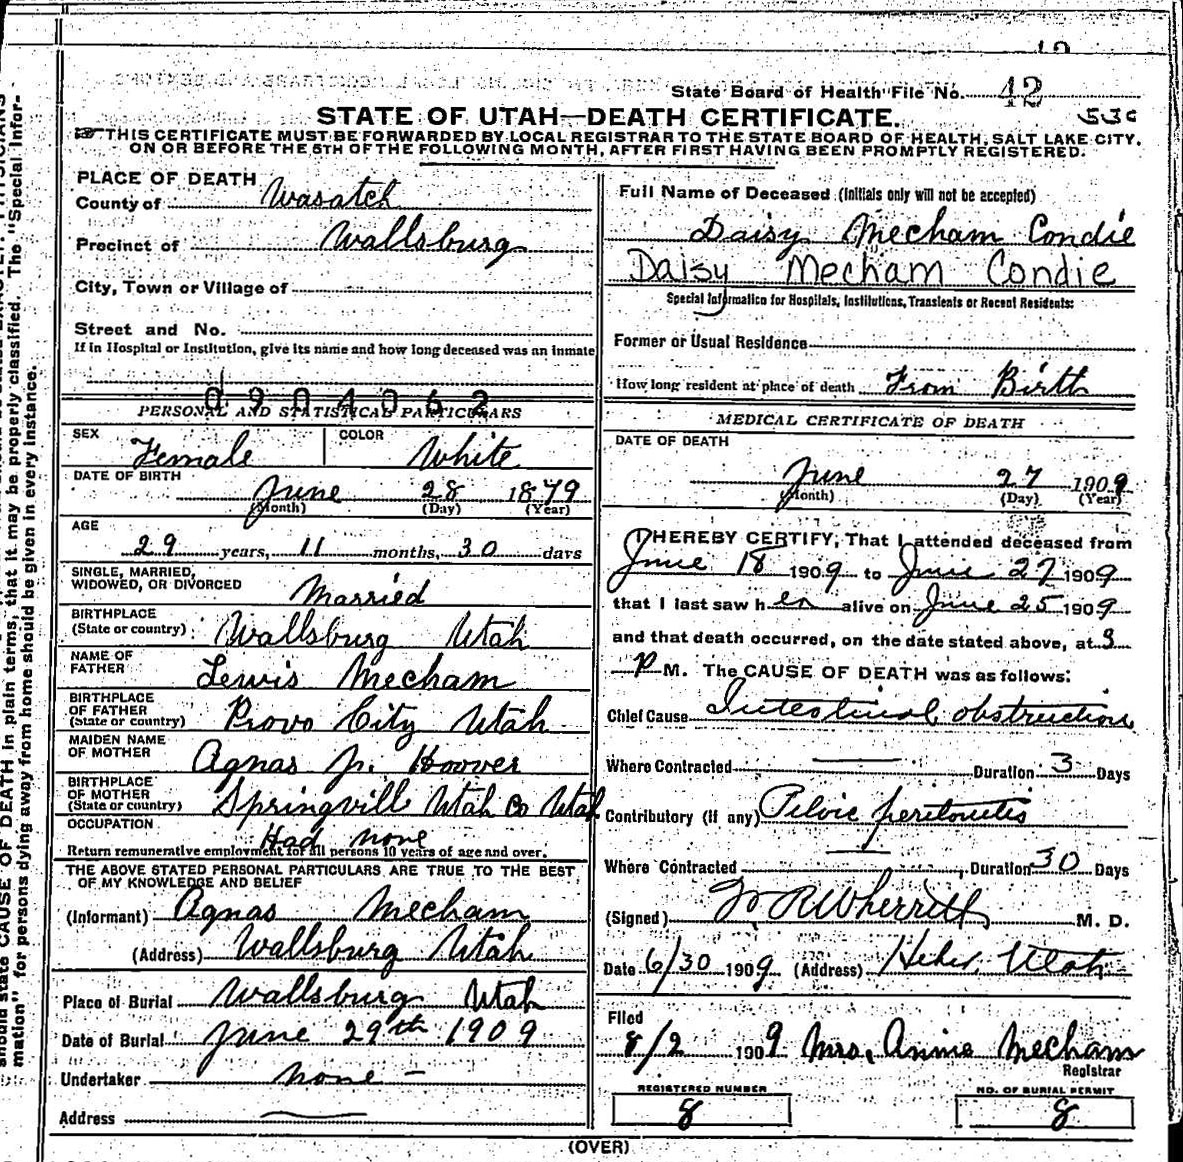 State Board of Health File No. 42
STATE OF UTAH—DEATH CERTIFICATE.
THIS CERTIFICATE MUST BE FORWARDED BY LOCAL REGISTRAR TO THE STATE BOARD OF HEALTH, SALT LAKE CITY,
ON OR BEFORE THE 5TH OF THE FOLLOWING MONTH, AFTER FIRST HAVING BEEN PROMPTLY REGISTERED.
PLACE OF DEATH
County of Wasatch
Precinct of Wallsburg
City, Town or Village of
Street and No.
If in Hospital or Institution, give its name and how long deceased was an inmate
0904062
PERSONAL AND STATISTICAL PARTICULARS
SEX Female COLOR White
DATE OF BIRTH
June 28 1879
(Month) (Day) (Year)
AGE
29 years, 11 months, 30 days
SINGLE, MARRIED,
WIDOWED, OR DIVORCED Married
BIRTHPLACE
(State or country) Wallsburg Utah
NAME OF
FATHER Lewis Mecham
BIRTHPLACE
OF FATHER
(State or country) Provo City Utah
MAIDEN NAME
OF MOTHER Agnas Hoover
BIRTHPLACE
OF MOTHER
(State or country) Springville Utah co Utah
OCCUPATION
Had none
Return remunerative employment for all persons 10 years of age and over.
THE ABOVE STATED PERSONAL PARTICULARS ARE TRUE TO THE BEST
OF MY KNOWLEDGE AND BELIEF
(Informant) Agnas Mecham
(Address) Wallsburg Utah
Place of Burial Wallsburg Utah
Date of Burial June 29th 1909
Undertaker none -
Address
Full Name of Deceased (Initials only will not be accepted)
Daisy Mecham Condie
Daisy Mecham Condie
Special Information for Hospitals, Institutions, Transients or Recent Residents:
Former or Usual Residence
How long resident at place of death From Birth
MEDICAL CERTIFICATE OF DEATH
DATE OF DEATH
June 27 1909
(Month) (Day) (Year)
I HEREBY CERTIFY, That I attended deceased from
June 18 1909 to June 27 1909
that I last saw her alive on June 25 1909
and that death occurred, on the date stated above, at 3
P M. The CAUSE OF DEATH was as follows:
Chief Cause Intestinal obstruction
Where Contracted Duration 3 Days
Contributory (if any) Pelvic peritonitis
Where Contracted , Duration 30 Days
(Signed) Wherritt M. D.
Date 6/30 1909 (Address) Heber, Utah
Filed
8/2 1909 Mrs. Annie Mecham
Registrar
REGISTERED NUMBER NO. OF BURIAL PERMIT
8 8
(OVER)
should state CAUSE OF DEATH in plain terms, that it may be properly classified. The "Special Infor-
mation" for persons dying away from home should be given in every instance.